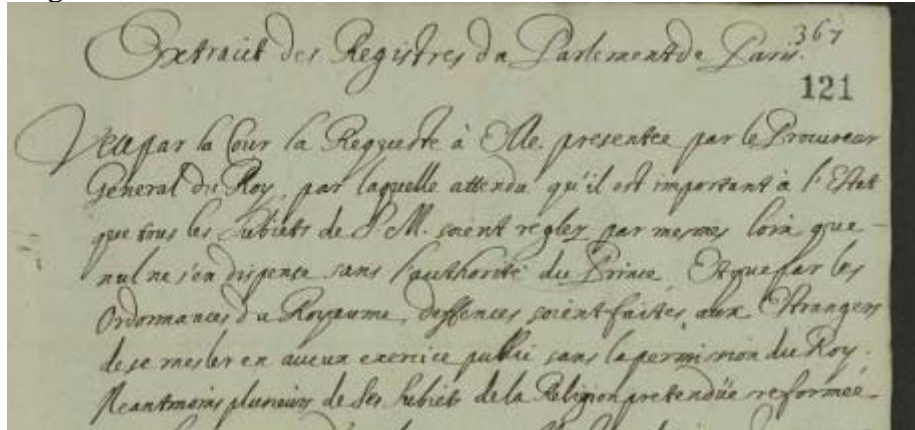 Extraict des Registres du Parlement de Paris.
367
121
Veu par la Cour la Requeste à Elle presentée par le Procureur
General du Roy, par laquelle attendu qu'il est important à l'Estat
que tous les subiets de S. M. soient reglez par mesmes loix que
nul ne s'en dispence sans l'authorité du Prince, Et que par les
Ordonnances du Royaume, deffences soient faites aux Estrangers
de se mesler en aucun exercice public sans la permission du Roy.
Neantmoins plusieurs de ses subiets de la Religion pretendüe reformée